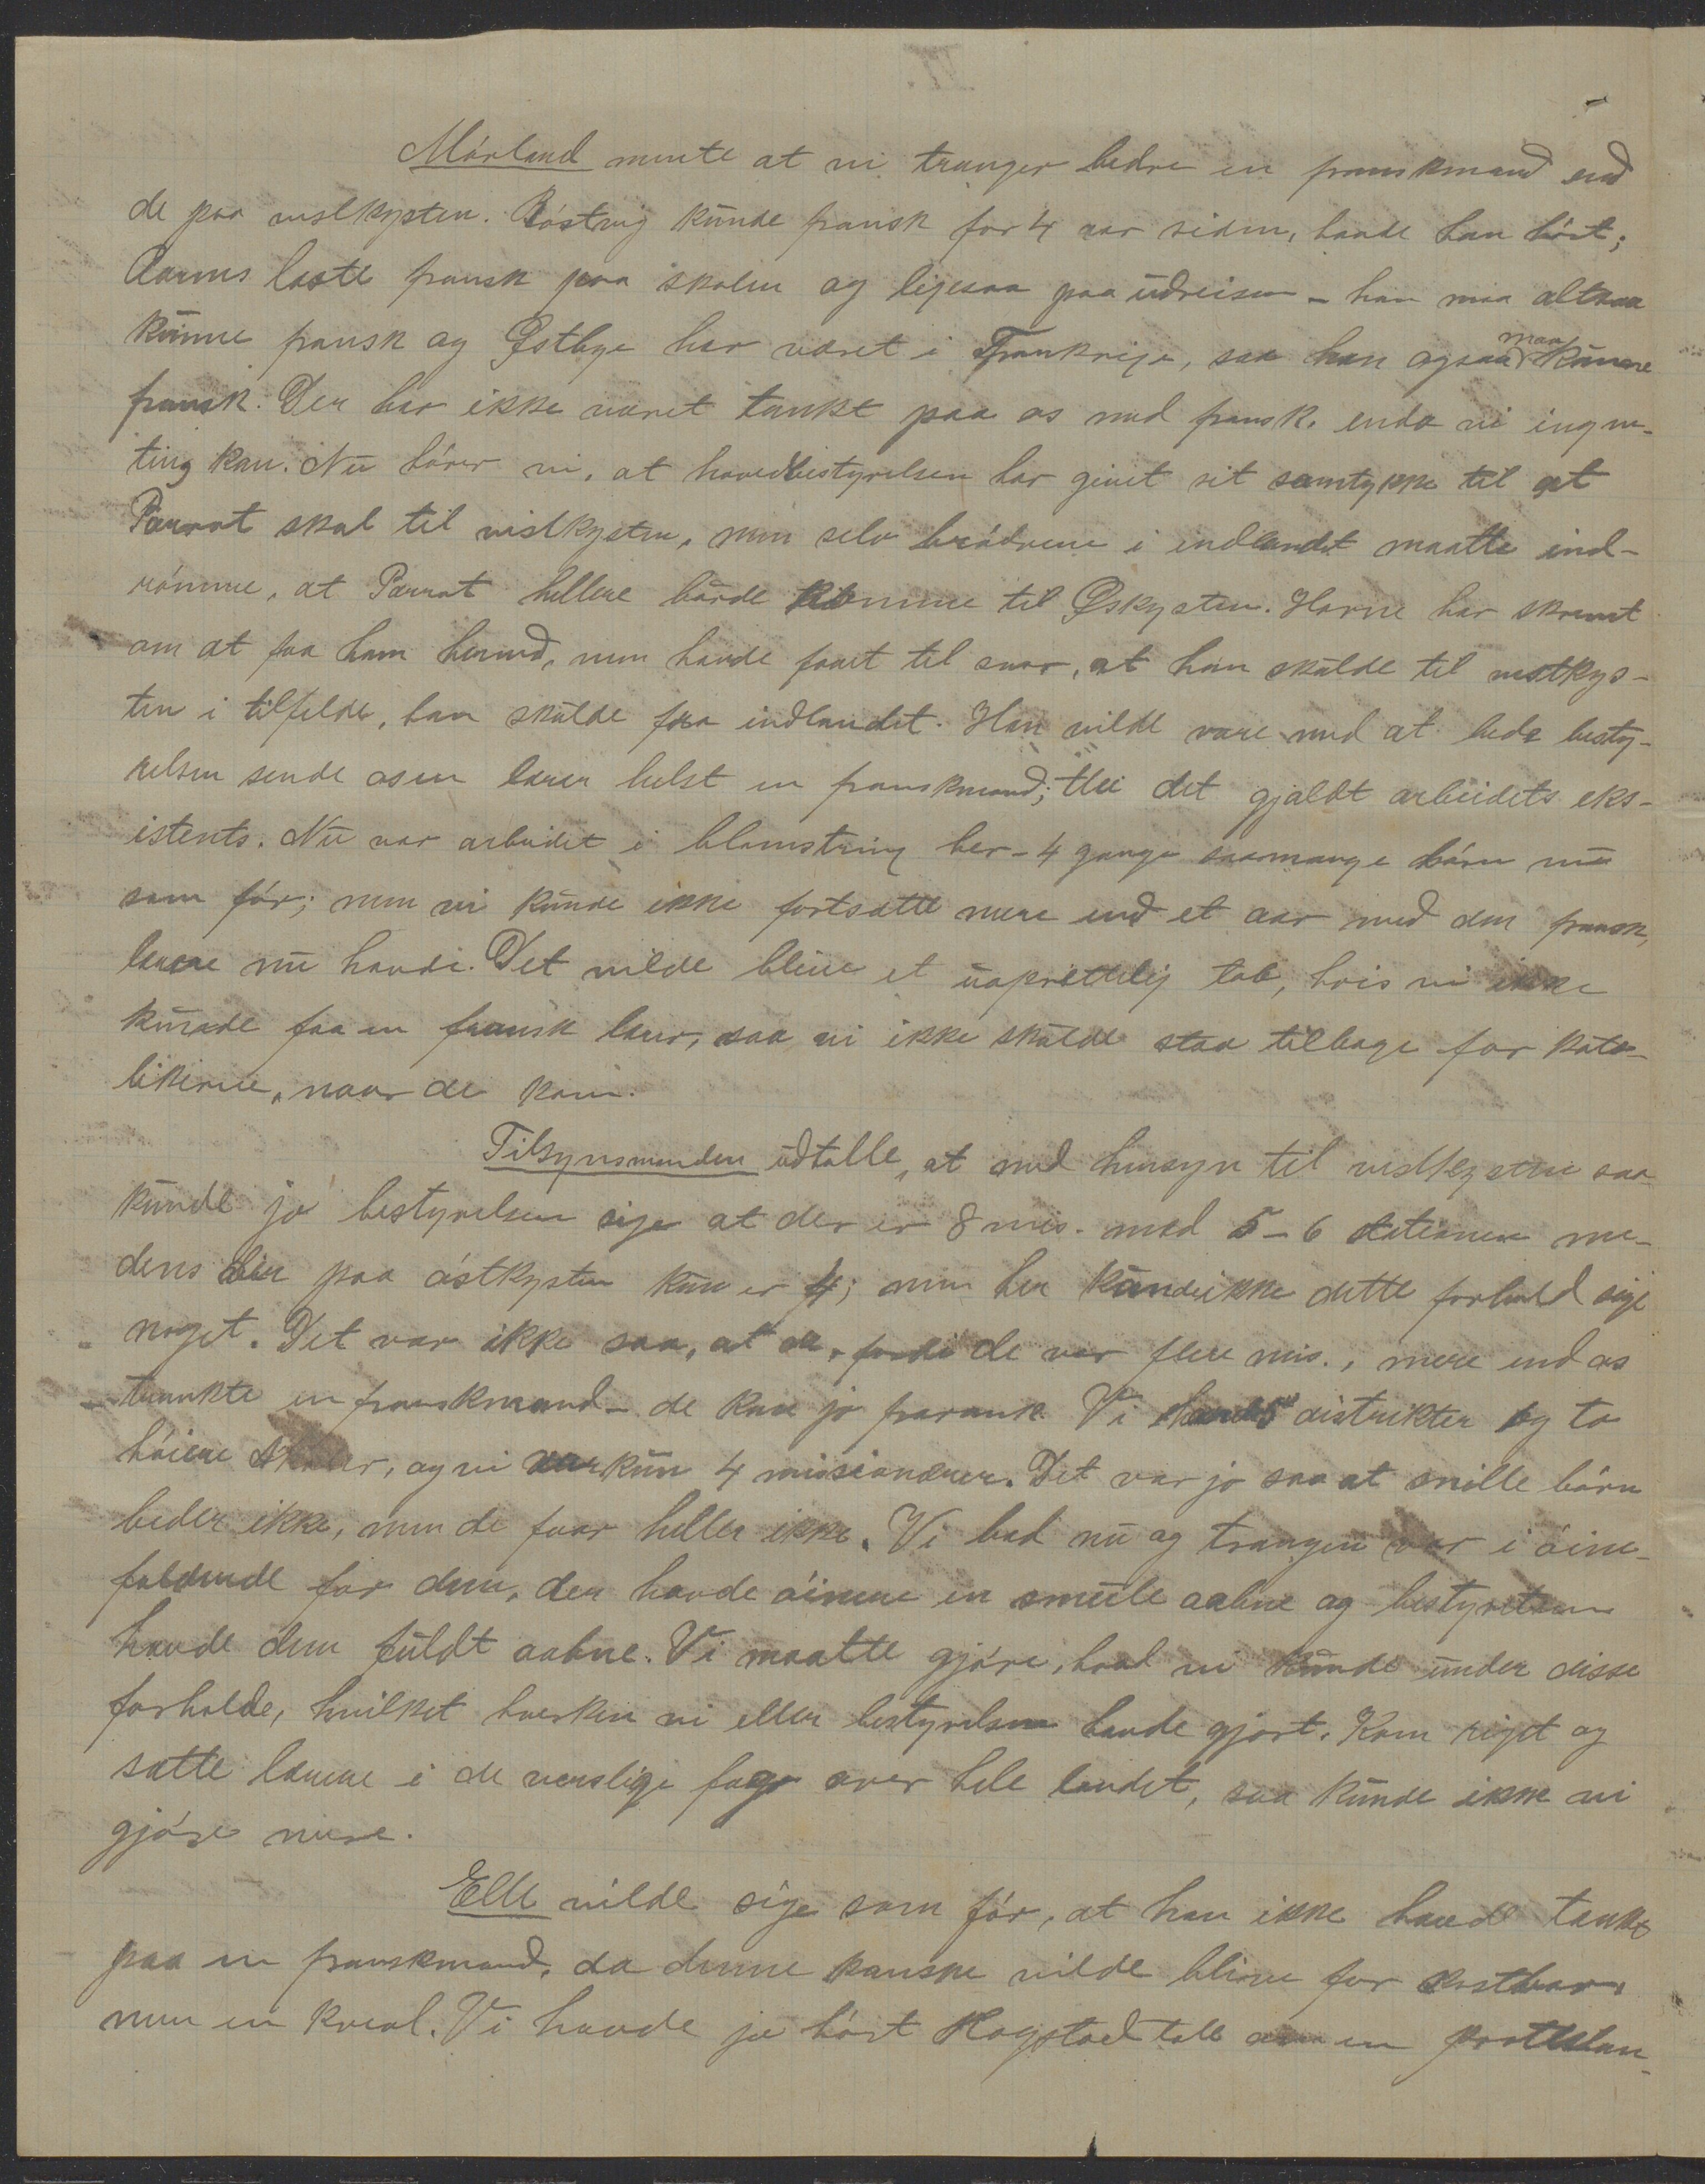 Mórland mente at vi trænger bedre en franskmand end
de paa vestkysten. Røstvig kunde fransk for 4 aar siden, havde han hørt;
Aarnes læste fransk paa skolen og ligesaa paa udreisen – han maa altsaa
kunne fransk og Østbye har været i Frankrige, saa han ogsaa maa kunne
fransk. Der har ikke været tænkt paa os med fransk, enda vi ingen-
ting kan. Nu hører vi, at hovedbestyrelsen har givet sit samtykke til at
Parrot skal til vestkysten, men selv brødrene i indlandet maatte ind-
rømme, at Parrot hellere burde komme til Østkysten. Horne har skrevet
om at faa ham herned, men havde faaet til svar, at han skulde til vestkys-
ten i tilfelde, han skulde fra indlandet. Han vilde være med at bede besty-
relsen sende os en lærer helst en franskmand; thi det gjaldt arbeidets eks-
istents. Nu var arbeidet i blomstring her – 4 gange saamange børn nu
som før; men vi kunde ikke fortsætte mere end et aar med den fransk
lærere nu havde. Det vilde blive et uoprettelig tab, hvis vi ikke
kunde faa en fransk lærer, saa vi ikke skulde staa tilbage for kato-
likerne, naar de kom.
Tilsynsmanden udtalte, at med hensyn til vestkysten saa
kunde jo bestyrelsen sige at der er 8 mis. med 5–6 stationer me-
dens der paa østkysten kun er 4; men her kunde ikke dette forhold sige
noget. Det var ikke saa, at de, fordi de var flere mis., mere end os
trænkte en franskmand – de kan jo fransk. Vi havde 5 distrikter og to
høiere skoler, og vi var kun 4 missionærer. Det var jo saa at snille børn
beder ikke, men de faar heller ikke. Vi bad nu og trangen var i øine-
faldende for dem, der havde øinene en smule aabne og bestyrelsen
havde dem fuldt aabne. Vi maatte gjøre, hvad vi kunde under disse
forholde, hvilket hverken vi eller bestyrelsen havde gjort. Kom riget og
satte lærere i de verslige fage over hele landet, saa kunde ikke vi
gjøre mere.
Elle vilde sige som før, at han ikke havde tænkt
paa en franskmand, da denne kanske vilde blive for kostbar,
men en kreol. Vi havde jo hørt Rogstad tale om en protestan-